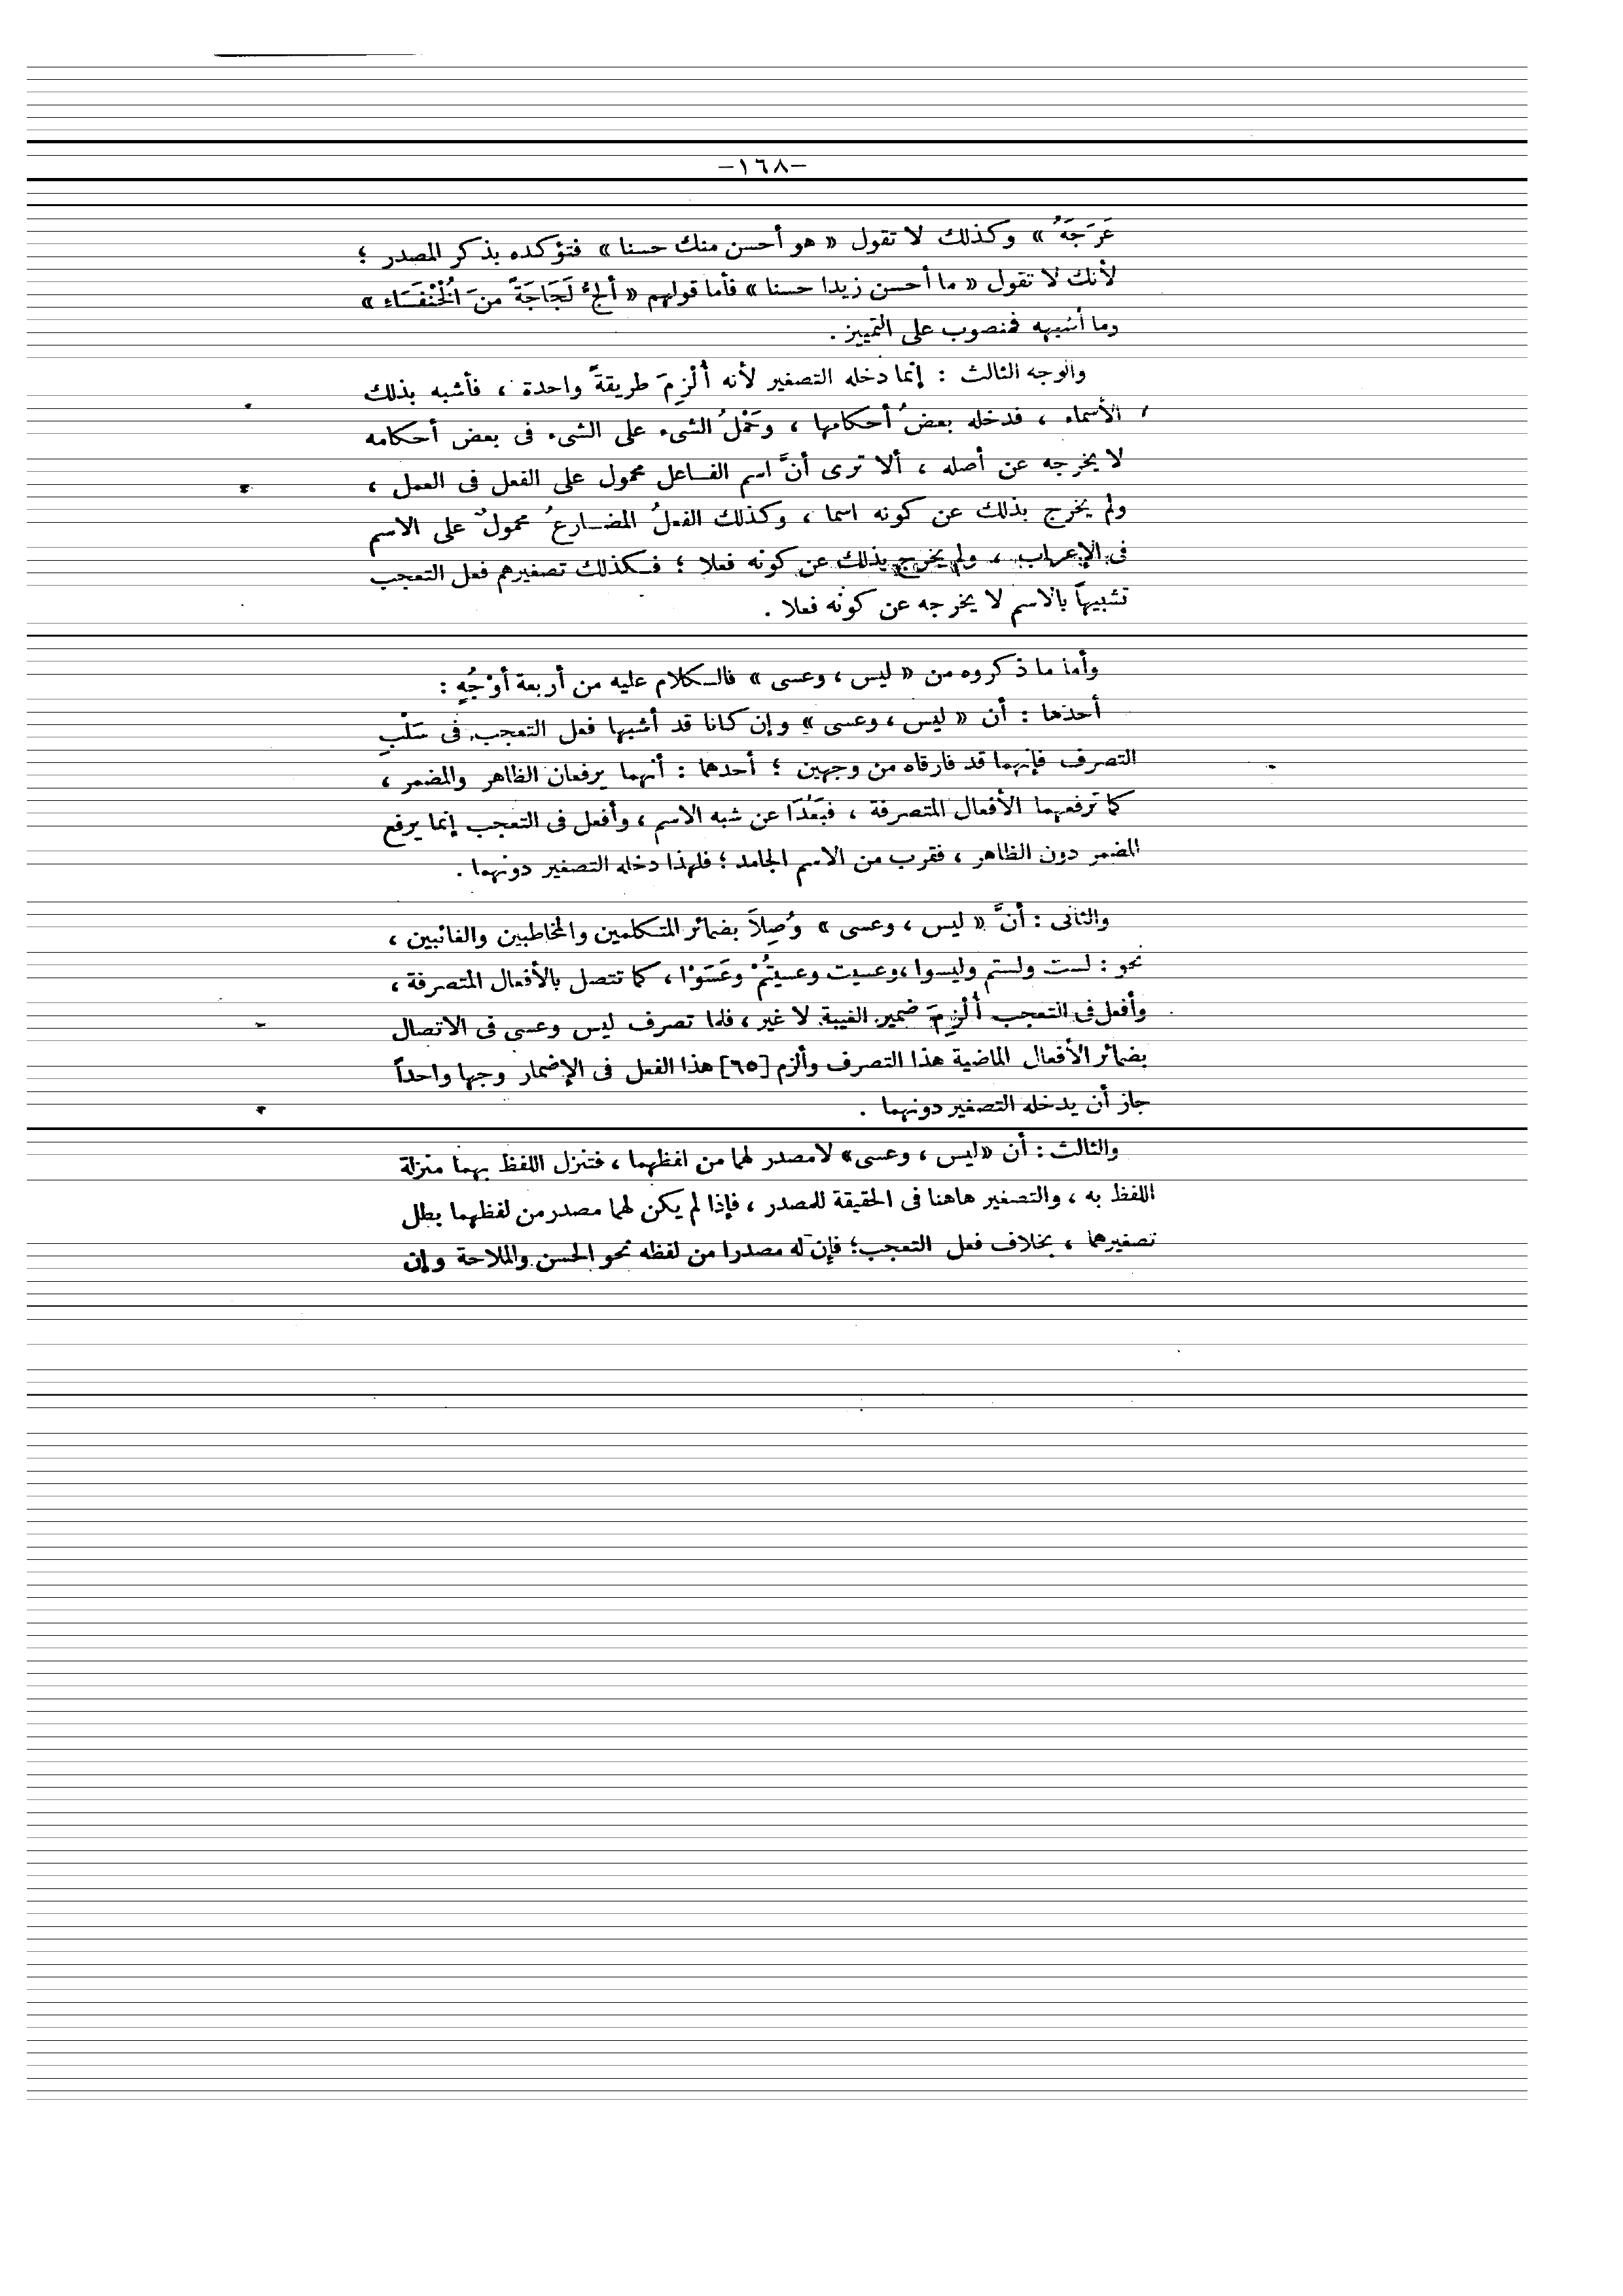 -١٦٨-
عَرَجَهُ » وكذلك لا تقول « هو أحسن منك حسنا » فتؤكده بذكر المصدر ؛
لأنك لا تقول « ما أحسن زيدا حسنا » فأما قولهم « ألجُّ لَجَاجَةً منَ الْخُنْفَسَاء »
وما أشبهه فمنصوب على التمييز .
والوجه الثالث : إنما دخله التصغير لأنه أُلْزِمَ طريقةً واحدة ، فأشبه بذلك
الأسماء ، فدخله بعضُ أحكامها ، وحَمْلُ الشىء على الشىء فى بعض أحكامه
لا يخرجه عن أصله ، ألا ترى أنَّ اسم الفاعل محمول على الفعل فى العمل ،
ولم يخرج بذلك عن كونه اسما ، وكذلك الفعلُ المضارعُ محمولٌ على الاسم
فى الإعراب ، ولم يخرج بذلك عن كونه فعلا ؛ فكذلك تصغيرهم فعل التعجب
تشبيهاً بالاسم لا يخرجه عن كونه فعلا .
وأما ما ذكروه من « ليس ، وعسى » فالكلام عليه من أربعة أوْجُهٍ :
أحدها : أن « ليس ، وعسى » وإن كانا قد أشبها فعل التعجب فى سَلْبِ
التصرف فإنهما قد فارقاه من وجهين ؛ أحدهما : أنهما يرفعان الظاهر والمضمر ،
كما ترفعهما الأفعال المتصرفة ، فبَعُدَا عن شبه الاسم ، وأفعل فى التعجب إنما يرفع
المضمر دون الظاهر ، فقرب من الاسم الجامد ؛ فلهذا دخله التصغير دونهما .
والثانى : أنَّ « ليس ، وعسى » وُصِلاَ بضمائر المتكلمين والمخاطبين والغائبين ،
نحو : لست ولستم وليسوا ، وعسيت وعسيتُمْ وعَسَوْا ، كما تتصل بالأفعال المتصرفة ،
وأفعل فى التعجب أُلْزِمَ ضمير الغيبة لا غير ، فلما تصرف ليس وعسى فى الاتصال
بضمائر الأفعال الماضية هذا التصرف وألزم [٦٥] هذا الفعل فى الإضمار وجها واحداً
جاز أن يدخله التصغير دونهما .
والثالث : أن «ليس ، وعسى» لا مصدر لهما من لفظهما ، فتنزل اللفظ بهما منزلة
اللفظ به ، والتصغير هاهنا فى الحقيقة للمصدر ، فإذا لم يكن لهما مصدر من لفظهما بطل
تصغيرهما ، بخلاف فعل التعجب؛ فإن له مصدرا من لفظه نحو الحسن والملاحة وإن